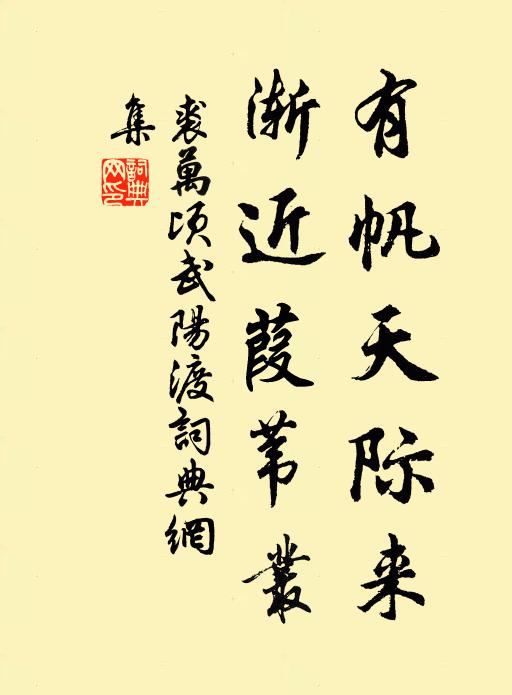 有帆天际来
渐近葭苇叢
裘萬顷武陽渡詞典網
集
詞典
网印